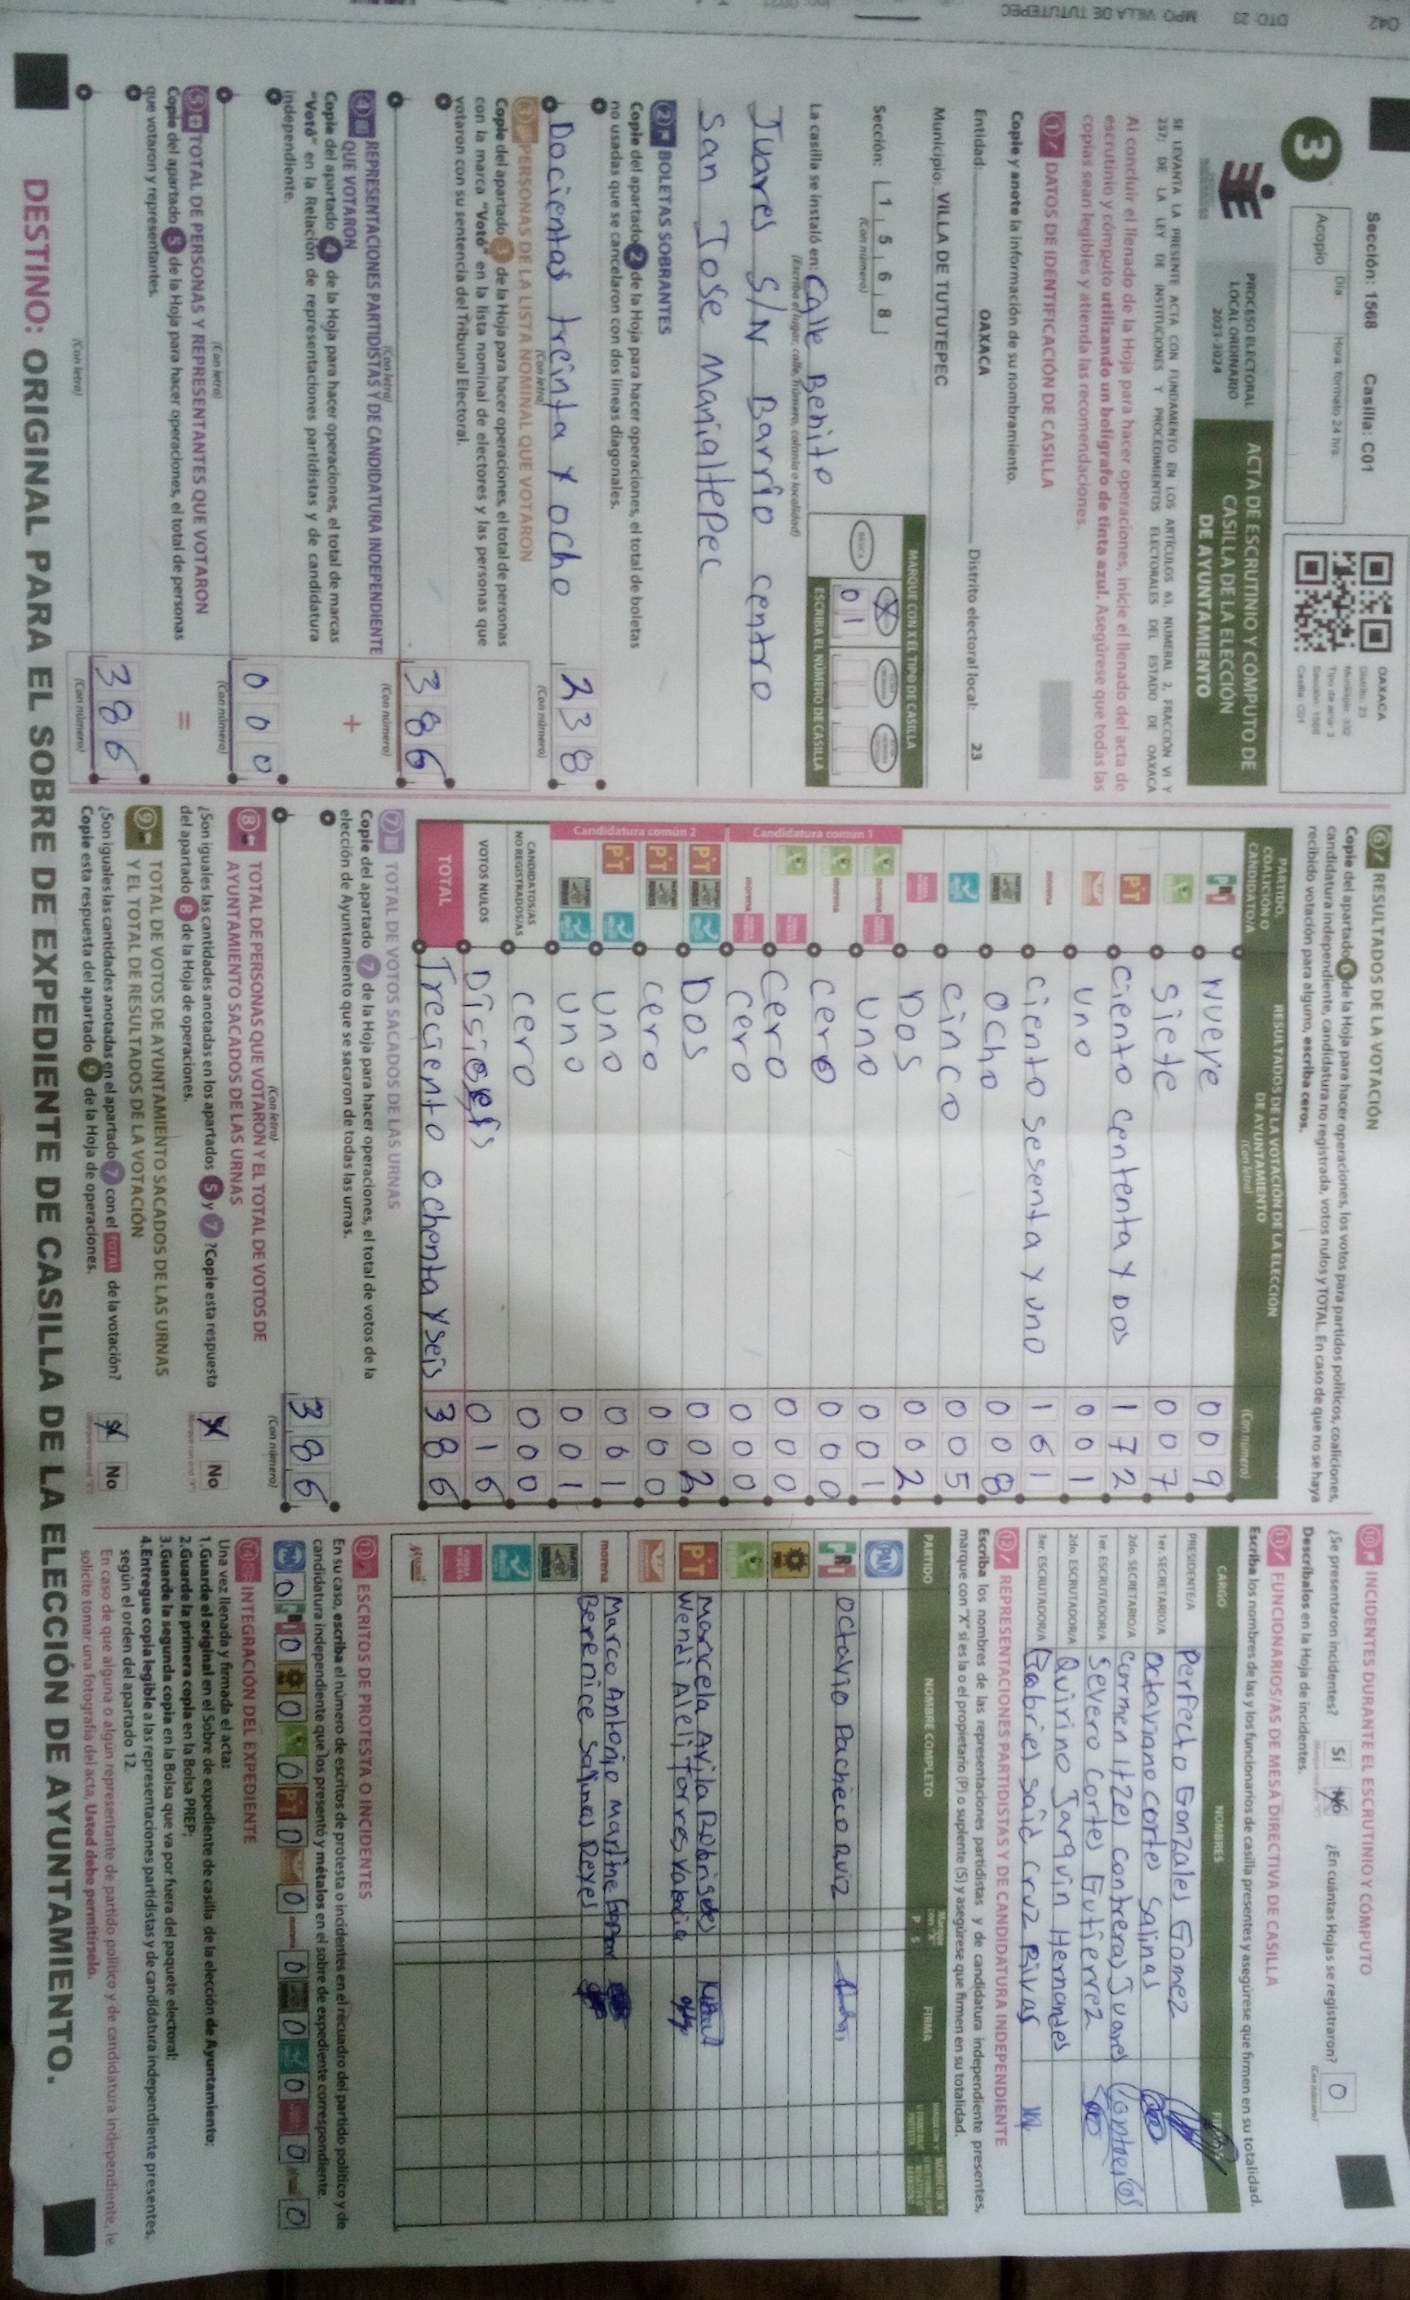 Sección: 1568 Casilla: C01
Día Hora formato 24 hrs.
Acopio
3
OAXACA
PROCESO ELECTORAL
LOCAL ORDINARIO
2023-2024
ACTA DE ESCRUTINIO Y CÓMPUTO DE
CASILLA DE LA ELECCIÓN
DE AYUNTAMIENTO
SE LEVANTA LA PRESENTE ACTA CON FUNDAMENTO EN LOS ARTÍCULOS 63, NUMERAL 2, FRACCIÓN VI Y
257; DE LA LEY DE INSTITUCIONES Y PROCEDIMIENTOS ELECTORALES DEL ESTADO DE OAXACA
Al concluir el llenado de la Hoja para hacer operaciones, inicie el llenado del acta de
escrutinio y cómputo utilizando un bolígrafo de tinta azul. Asegúrese que todas las
copias sean legibles y atienda las recomendaciones.
1 DATOS DE IDENTIFICACIÓN DE CASILLA
Copie y anote la información de su nombramiento.
Entidad: OAXACA Distrito electoral local: 23
Municipio: VILLA DE TUTUTEPEC
Sección: 1 5 6 8
(Con número)
MARQUE CON X EL TIPO DE CASILLA
BÁSICA X
ESCRIBA EL NÚMERO DE CASILLA
0 1
La casilla se instaló en: Calle Benito
(Escriba el lugar, calle, número, colonia o localidad)
Juares S/N Barrio centro
San Jose Manialtepec
2 BOLETAS SOBRANTES
Copie del apartado 2 de la Hoja para hacer operaciones, el total de boletas
no usadas que se cancelaron con dos líneas diagonales.
Docientas treinta y ocho 238
(Con letra) (Con número)
3 PERSONAS DE LA LISTA NOMINAL QUE VOTARON
Copie del apartado 3 de la Hoja para hacer operaciones, el total de personas
con la marca "Votó" en la lista nominal de electores y las personas que
votaron con su sentencia del Tribunal Electoral.
386
(Con letra) (Con número)
4 REPRESENTACIONES PARTIDISTAS Y DE CANDIDATURA INDEPENDIENTE
QUE VOTARON +
Copie del apartado 4 de la Hoja para hacer operaciones, el total de marcas
"Votó" en la Relación de representaciones partidistas y de candidatura
independiente.
000
(Con letra) (Con número)
5 TOTAL DE PERSONAS Y REPRESENTANTES QUE VOTARON =
Copie del apartado 5 de la Hoja para hacer operaciones, el total de personas
que votaron y representantes.
386
(Con letra) (Con número)
6 RESULTADOS DE LA VOTACIÓN
Copie del apartado 6 de la Hoja para hacer operaciones, los votos para partidos políticos, coaliciones,
candidatura independiente, candidatura no registrada, votos nulos y TOTAL. En caso de que no se haya
recibido votación para alguno, escriba ceros.
PARTIDO, COALICIÓN O CANDIDATO/A
RESULTADOS DE LA VOTACIÓN DE LA ELECCIÓN DE AYUNTAMIENTO
(Con letra) (Con número)
Nueve 009
Siete 007
PT ciento cententa y Dos 172
uno 001
morena ciento sesenta y uno 161
ocho 008
cinco 005
Dos 002
Candidatura común 1
uno 001
cero 000
cero 000
cero 000
Candidatura común 2
PT Dos 002
PT cero 000
PT uno 001
uno 001
CANDIDATOS/AS NO REGISTRADOS/AS cero 000
VOTOS NULOS 016
TOTAL Treciento ochenta y seis 386
7 TOTAL DE VOTOS SACADOS DE LAS URNAS
Copie del apartado 7 de la Hoja para hacer operaciones, el total de votos de la
elección de Ayuntamiento que se sacaron de todas las urnas.
386
(Con letra) (Con número)
8 TOTAL DE PERSONAS QUE VOTARON Y EL TOTAL DE VOTOS DE
AYUNTAMIENTO SACADOS DE LAS URNAS
¿Son iguales las cantidades anotadas en los apartados 5 y 7? Copie esta respuesta
del apartado 8 de la Hoja de operaciones. X No
9 TOTAL DE VOTOS DE AYUNTAMIENTO SACADOS DE LAS URNAS
Y EL TOTAL DE RESULTADOS DE LA VOTACIÓN
¿Son iguales las cantidades anotadas en el apartado 7 con el TOTAL de la votación?
Copie esta respuesta del apartado 9 de la Hoja de operaciones. X No
10 INCIDENTES DURANTE EL ESCRUTINIO Y CÓMPUTO
¿Se presentaron incidentes? Sí No ¿En cuántas Hojas se registraron? 0
Descríbalos en la Hoja de incidentes.
11 FUNCIONARIOS/AS DE MESA DIRECTIVA DE CASILLA
Escriba los nombres de las y los funcionarios de casilla presentes y asegúrese que firmen en su totalidad.
CARGO NOMBRES
PRESIDENTE/A Perfecto Gonzales Gomez
1er. SECRETARIO/A Octaviano cortes Salinas
2do. SECRETARIO/A Carmen Itzel contreras Juares
1er. ESCRUTADOR/A Severo Cortes Gutierrez
2do. ESCRUTADOR/A Quirino Jarquin Hernandes
3er. ESCRUTADOR/A Gabriel Said Cruz Rivas
12 REPRESENTACIONES PARTIDISTAS Y DE CANDIDATURA INDEPENDIENTE
Escriba los nombres de las representaciones partidistas y de candidatura independiente presentes,
marque con "X" si es la o el propietario (P) o suplente (S) y asegúrese que firmen en su totalidad.
PARTIDO NOMBRE COMPLETO P S FIRMA
PAN
PRI Octavio Pacheco Ruiz
PRD
PT Maricela Avila
Wendi Aeli Torres
morena Marco Antonio
Berenice Salinas Reyes
13 ESCRITOS DE PROTESTA O INCIDENTES
En su caso, escriba el número de escritos de protesta o incidentes en el recuadro del partido político y de
candidatura independiente que los presentó y métalos en el sobre de expediente correspondiente.
PAN 0 PRI 0 0 0 PT 0 0 0 0 0 0 0
14 INTEGRACIÓN DEL EXPEDIENTE
Una vez llenada y firmada el acta:
1.Guarde el original en el Sobre de expediente de casilla de la elección de Ayuntamiento;
2.Guarde la primera copia en la Bolsa PREP;
3.Guarde la segunda copia en la Bolsa que va por fuera del paquete electoral;
4.Entregue copia legible a las representaciones partidistas y de candidatura independiente presentes,
según el orden del apartado 12.
En caso de que alguna o algun representante de partido político y de candidatura independiente, le
solicite tomar una fotografía del acta, Usted debe permitírselo.
DESTINO: ORIGINAL PARA EL SOBRE DE EXPEDIENTE DE CASILLA DE LA ELECCIÓN DE AYUNTAMIENTO.
042 DTO 23 MPO VILLA DE TUTUTEPEC